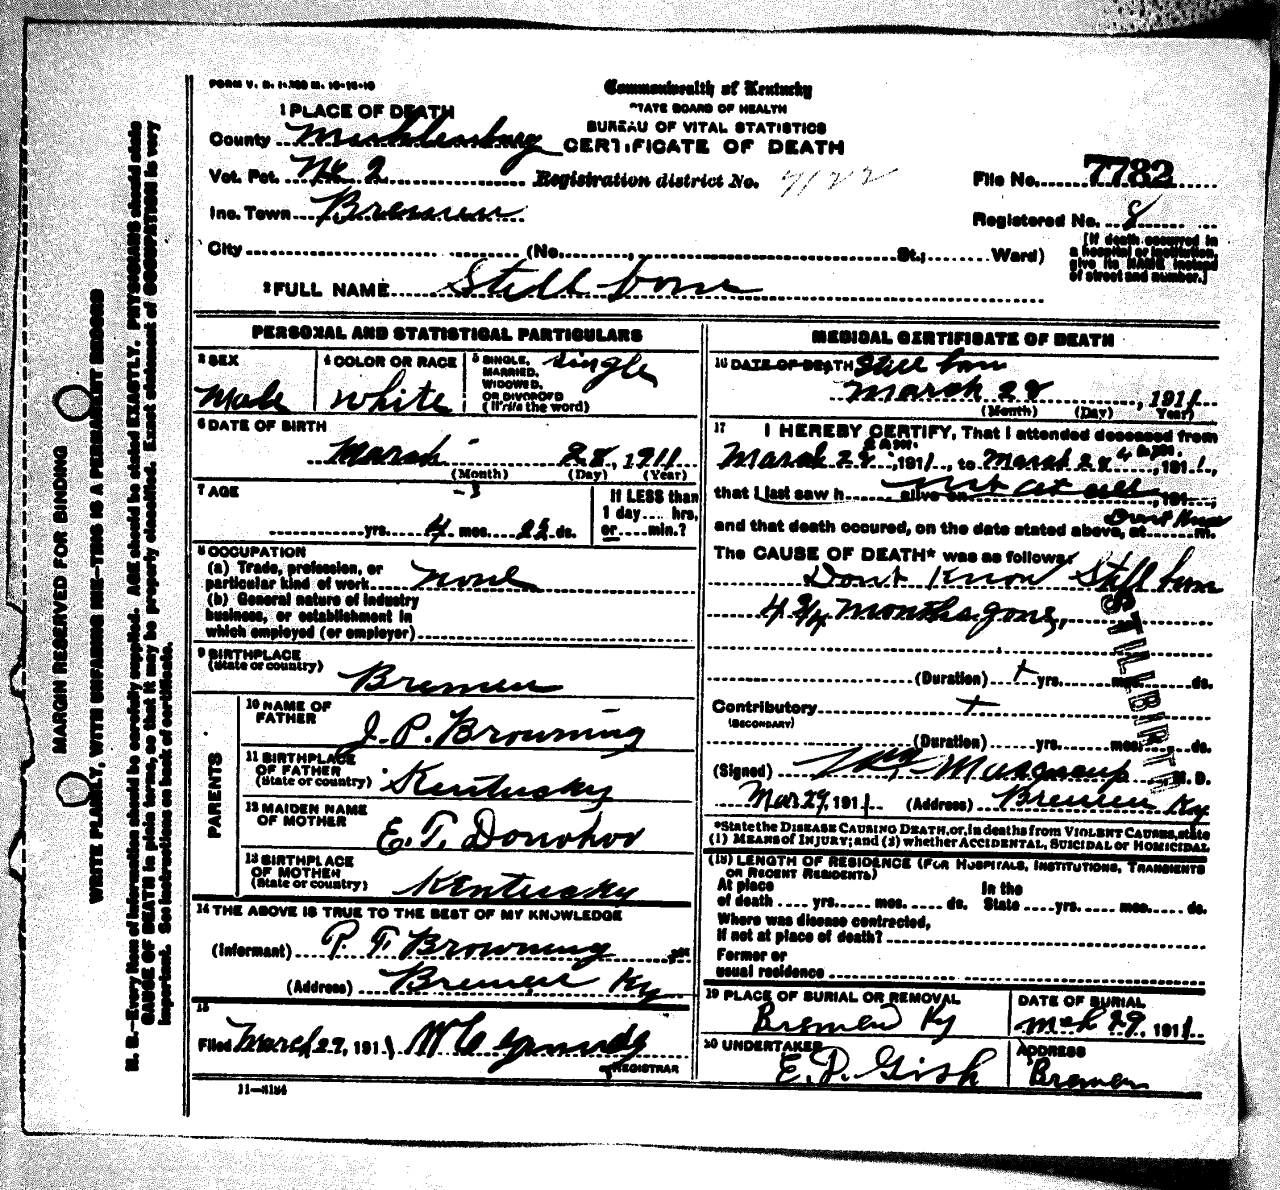 FORM V. S. 1-300 M. 10-15-10
Commonwealth of Kentucky
STATE BOARD OF HEALTH
BUREAU OF VITAL STATISTICS
CERTIFICATE OF DEATH
1 PLACE OF DEATH
County Muhlenburg
Vot. Pct. No 2 Registration district No. 7122
File No. 7782
Inc. Town Bremen
Registered No. 8
City (No. St.; Ward)
[If death occurred in
a hospital or institution,
give its NAME instead
of street and number.]
2 FULL NAME Still born
PERSONAL AND STATISTICAL PARTICULARS
3 SEX
Male
4 COLOR OR RACE
White
5 SINGLE,
MARRIED,
WIDOWED,
OR DIVORCED
(Write the word)
Single
6 DATE OF BIRTH
March 28, 1911
(Month) (Day) (Year)
7 AGE
yrs. 4 mos. 23 ds.
If LESS than
1 day hrs.
or min.?
8 OCCUPATION
(a) Trade, profession, or
particular kind of work none
(b) General nature of industry
business, or establishment in
which employed (or employer)
9 BIRTHPLACE
(State or country)
Bremen
PARENTS
10 NAME OF
FATHER
J. P. Browning
11 BIRTHPLACE
OF FATHER
(State or country)
Kentucky
12 MAIDEN NAME
OF MOTHER
E. T. Donohoo
13 BIRTHPLACE
OF MOTHER
(State or country)
Kentucky
14 THE ABOVE IS TRUE TO THE BEST OF MY KNOWLEDGE
(Informant) P. T. Browning
(Address) Bremen Ky
15
Filed March 29, 1911
REGISTRAR
11-3184
MEDICAL CERTIFICATE OF DEATH
16 DATE OF DEATH Still born
March 28, 1911
(Month) (Day) Year)
17 I HEREBY CERTIFY, That I attended deceased from
March 28 2 am., 1911, to March 28 4 am., 1911,
that I last saw h alive on Not at all, 191,
and that death occured, on the date stated above, at Dont Know m.
The CAUSE OF DEATH* was as follows:
Dont Know Still born
4 3/4 months gone,
STILLBIRTH
(Duration) yrs. mos. ds.
Contributory
(SECONDARY)
(Duration) yrs. mos. ds.
(Signed) Musgrave M. D.
Mar 29, 1911 (Address) Bremen Ky
*State the DISEASE CAUSING DEATH, or, in deaths from VIOLENT CAUSES, state
(1) MEANS of INJURY; and (2) whether ACCIDENTAL, SUICIDAL or HOMICIDAL
(18) LENGTH OF RESIDENCE (FOR HOSPITALS, INSTITUTIONS, TRANSIENTS
OR RECENT RESIDENTS)
At place In the
of death yrs. mos. ds. State yrs. mos. ds.
Where was disease contracted,
if not at place of death?
Former or
usual residence
19 PLACE OF BURIAL OR REMOVAL
Bremen Ky
DATE OF BURIAL
Mch 29, 1911
20 UNDERTAKER
E. P. Gish
ADDRESS
Bremen
MARGIN RESERVED FOR BINDING
WRITE PLAINLY, WITH UNFADING INK—THIS IS A PERMANENT RECORD
N. B.—Every item of information should be carefully supplied. AGE should be stated EXACTLY. PHYSICIANS should state
CAUSE OF DEATH in plain terms, so that it may be properly classified. Exact statement of OCCUPATION is very
important. See instructions on back of certificate.